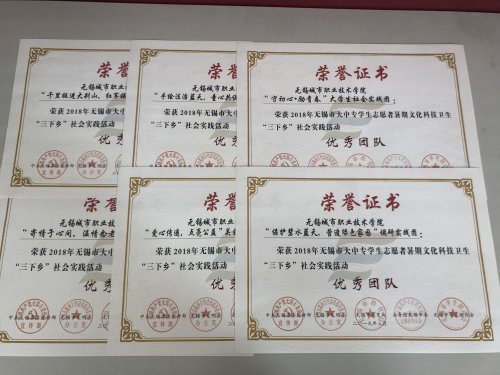 荣誉证书
无锡城市职业技术学院
“千里挺进大别山,红军
荣获2018年无锡市大中
“三下乡”社会实践活动
优秀
荣誉证书
无锡城市职业技术
“手绘泾浩蓝天,童心共
荣获2018年无锡市大
“三下乡”社会实践活动
优秀
荣誉证书
无锡城市职业技术学院
“守初心•励青春”大学生社会实践团:
荣获2018年无锡市大中专学生志愿者暑期文化科技卫生
“三下乡”社会实践活动
优秀团队
荣誉
无锡城市职业技
“寄情于心间,温情敬老
荣获2018年无锡市大中
“三下乡”社会实践活动
优秀
荣誉证书
无锡城市职业技术
“爱心传递,点亮公益”
荣获2018年无锡市大
“三下乡”社会实践活动
优秀
荣誉证书
无锡城市职业技术学院
“保护碧水蓝天,营造绿色家园”调研实践团:
荣获2018年无锡市大中专学生志愿者暑期文化科技卫生
“三下乡”社会实践活动
优秀团队
二〇一九年一月